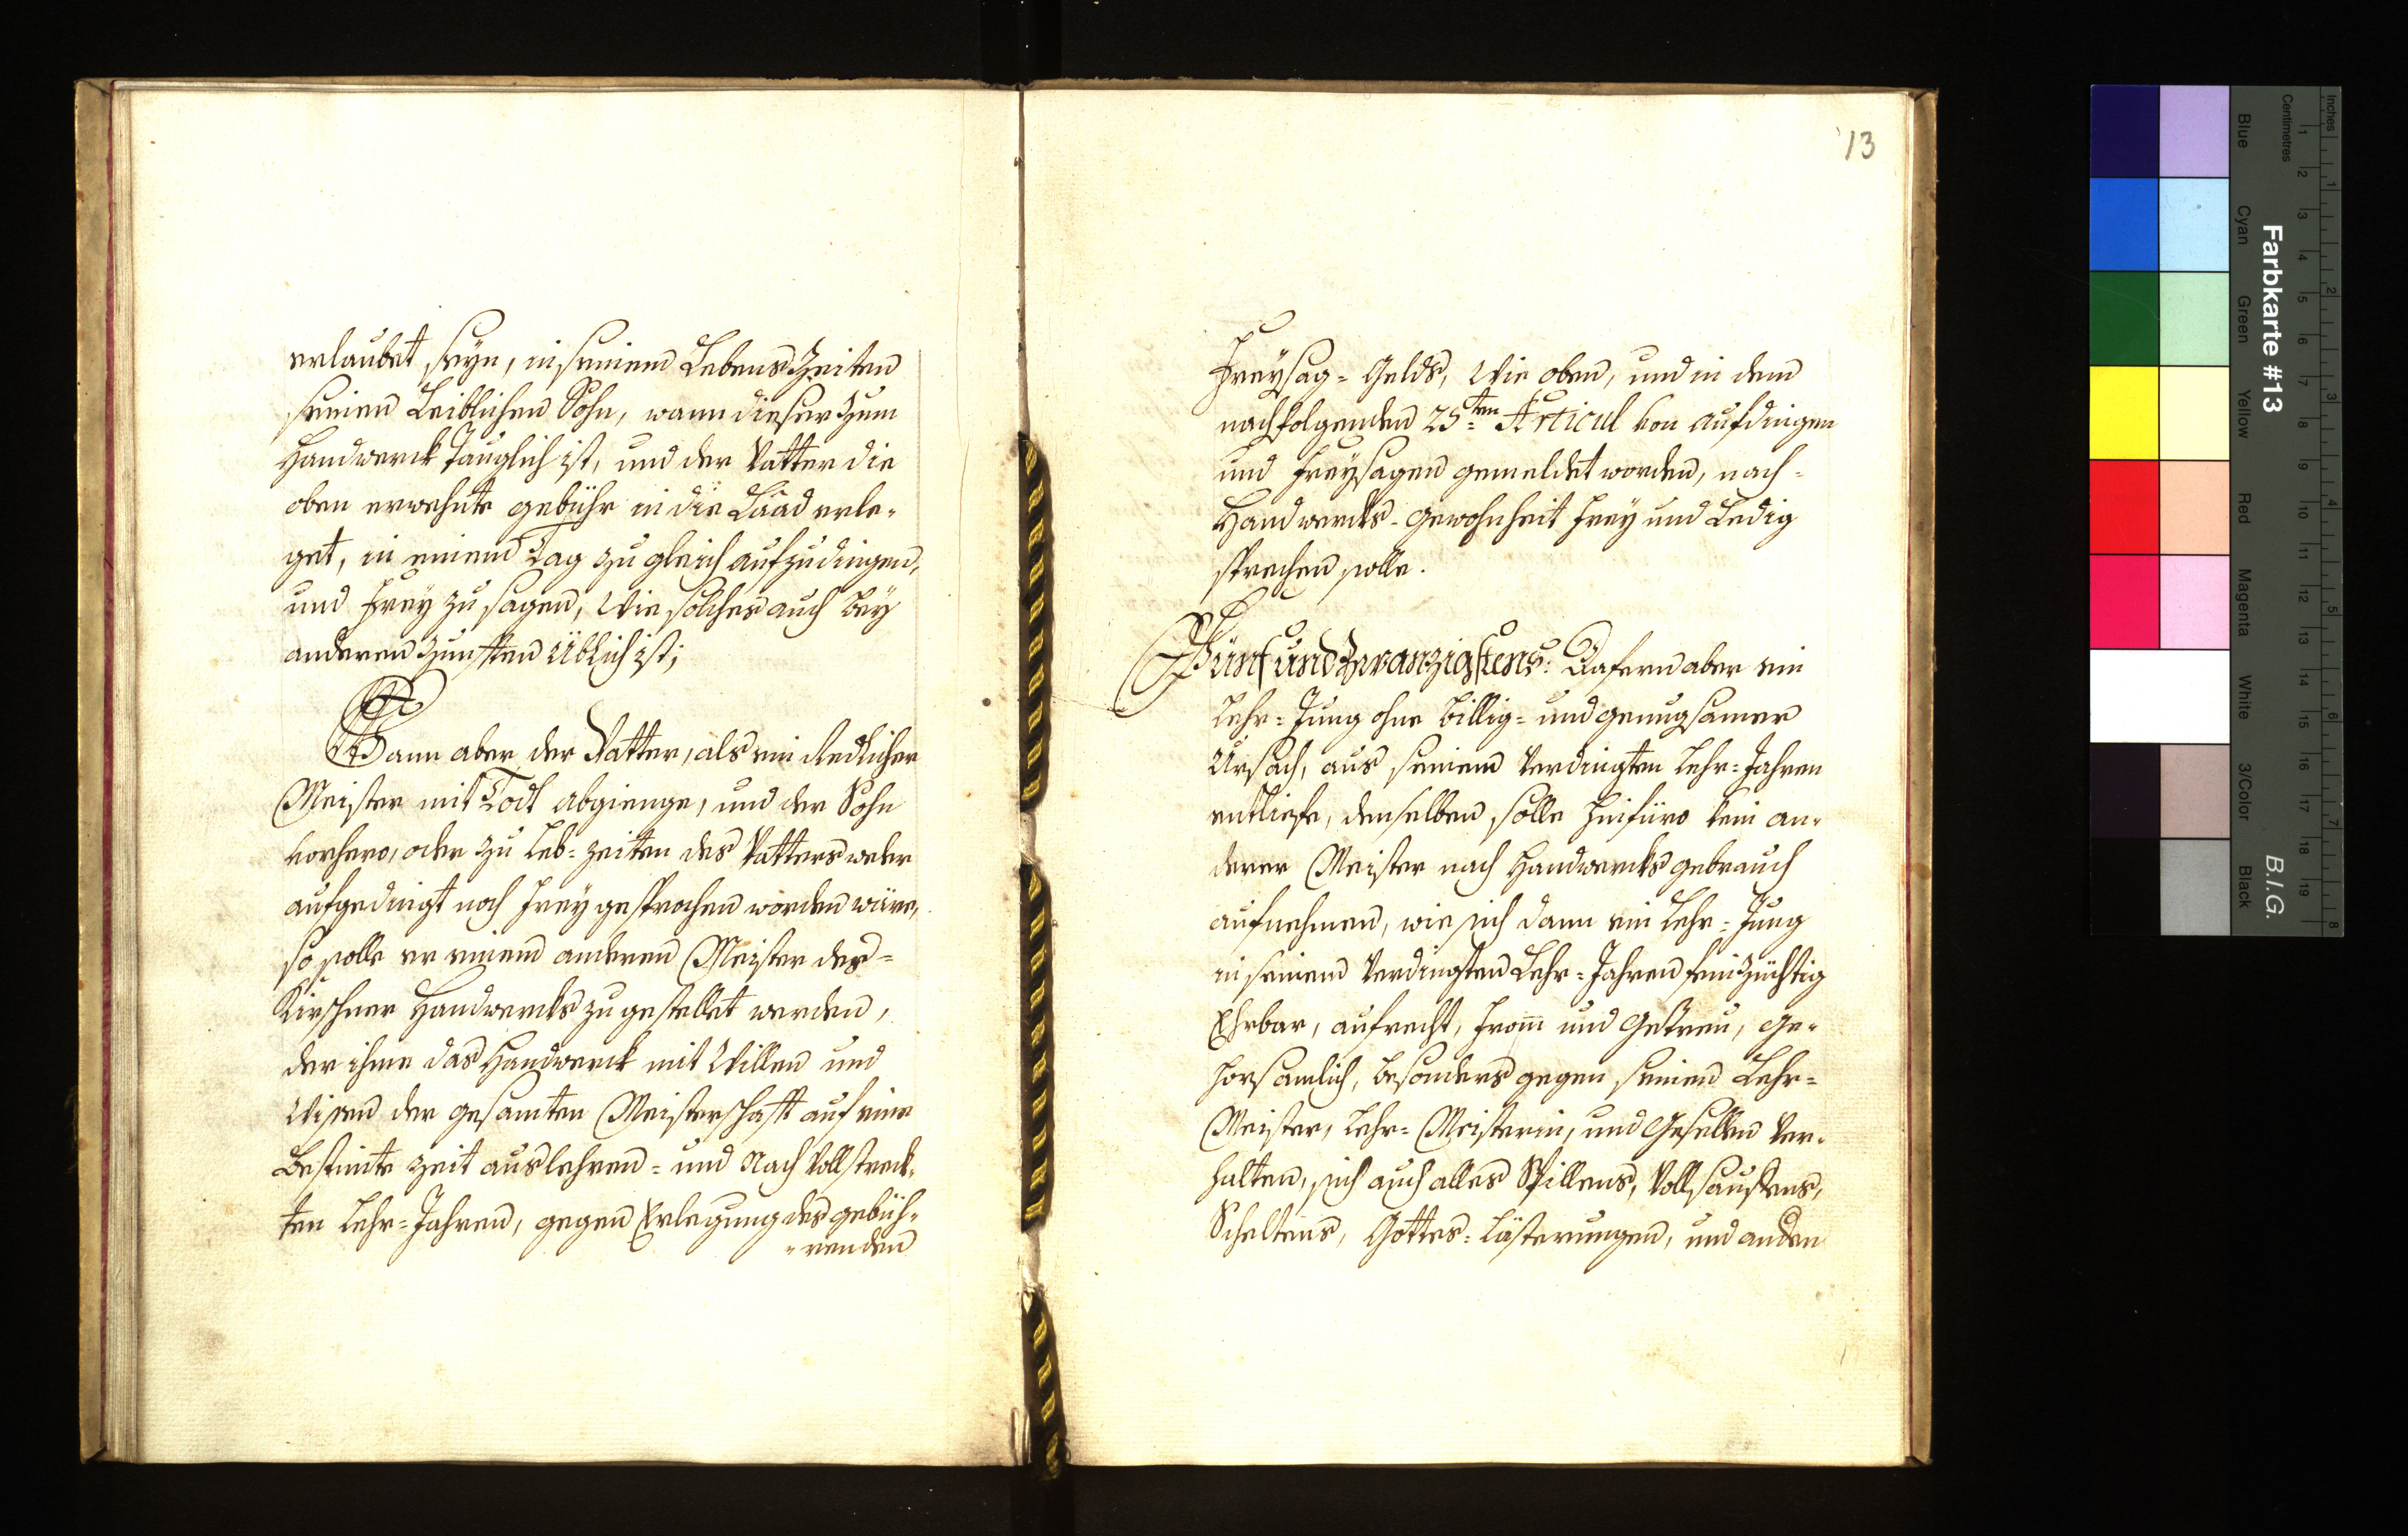 erlaubet seyn, in seinem Lebens Zeiten
seinen Leiblichen Sohn, wann dieser zum
Handwerck Tauglich ist, und der Vatter die
oben erwehnte gebühr in die Laad erle-
get, in einem Tag zu gleich aufzudingen,
und Frey zu sagen, wie solches auch bey
anderen Zunfften Üblich ist;
Wann aber der Vatter, als ein Redlicher
Meister mit Todt abgienge, und der Sohn
vorhero, oder zu Leb=zeiten des Vatters weder
aufgedingt noch Frey gesprochen worden wäre,
so solle er einem anderen Meister des=
Kirschner Handwercks zu gestellet werden,
der ihme das Handwerck mit Willen und
Wissen der gesamten Meisterschafft auf eine
bestimte Zeit auslehren= und Nach Vollstreck-
ten Lehr=Jahren, gegen Erlegung des gebüh-
-renden
13
Freysag=Gelds, Wie oben, und in dem
nachfolgenden 25ten Articul von Aufdingen
und Freysagen gemeldet worden, nach=
Handwercks-Gewohnheit Frey und Ledig
sprechen solle.
Fünf und Zwanzigstens: Dafern aber ein
Lehr=Jung ohne Billig= und genugsamer
Ursach, aus seinem Verdingten Lehr=Jahren
entliefe, denselben solle hinfüro kein an-
derer Meister nach Handwercks gebrauch
aufnehmen, wie sich dann ein Lehr=Jung
in seinem Verdingten Lehr=Jahren fein Züchtig
Ehrbar, aufrecht, from̅ und Getreu, ge-
horsamlich, besonders gegen seinen Lehr=
Meister, Lehr=Meisterin, und Gesellen Ver-
halten, sich auch alles Spillens, Vollsauffens,
Scheltens, Gottes=Lästerungen, und anden
Inches
Centimetres
Farbkarte #13
B.I.G.
Blue
Cyan
Green
Yellow
Red
Magenta
White
3/Color
Black
1 2 3 4 5 6 7 8 9 10 11 12 13 14 15 16 17 18 19
1 2 3 4 5 6 7 8